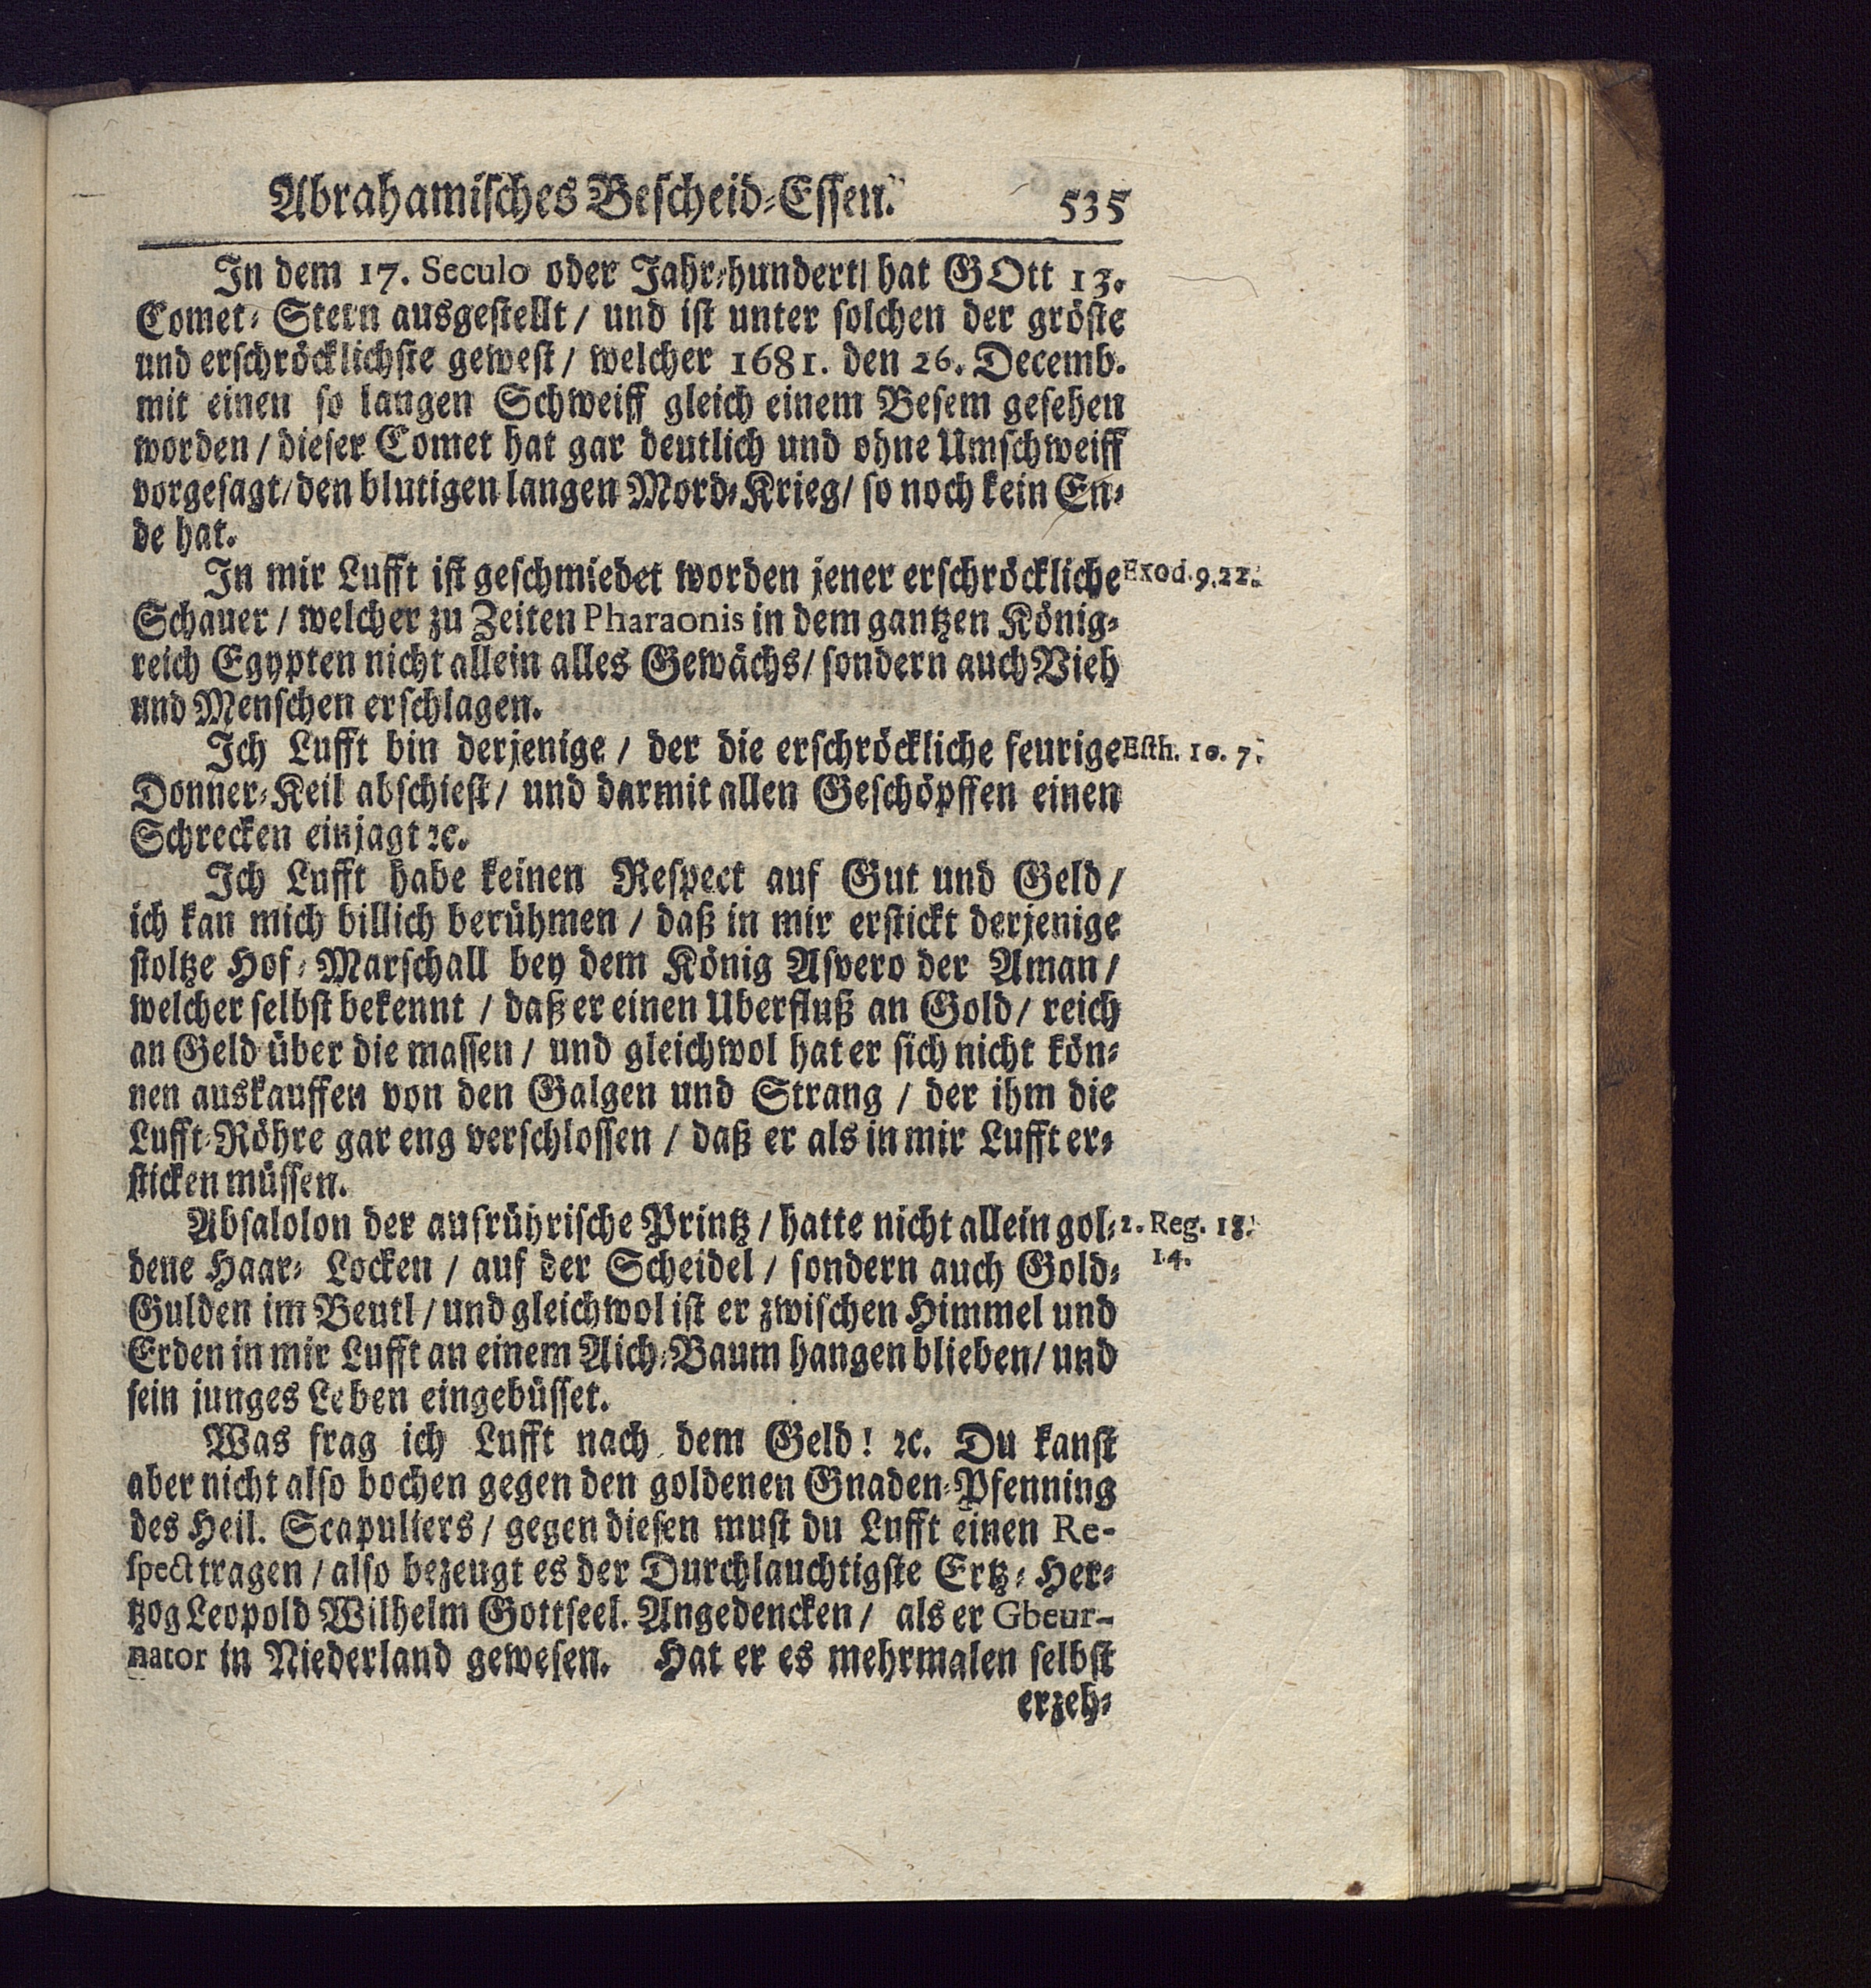 Abrahamisches Bescheid-Essen. 535
In dem 17. Seculo oder Jahr-hundert/ hat GOtt 13.
Comet- Stern ausgestellt / und ist unter solchen der gröste
und erschröcklichste gewest / welcher 1681. den 26. Decemb.
mit einen so langen Schweiff gleich einem Besem gesehen
worden / dieser Comet hat gar deutlich und ohne Umschweiff
vorgesagt/ den blutigen langen Mord-Krieg/ so noch kein En-
de hat.
In mir Lufft ist geschmiedet worden jener erschröckliche Exod. 9. 22.
Schauer / welcher zu Zeiten Pharaonis in dem gantzen König-
reich Egypten nicht allein alles Gewächs/ sondern auch Vieh
und Menschen erschlagen.
Ich Lufft bin derjenige / der die erschröckliche feurige Esth. 10. 7.
Donner-Keil abschiest / und darmit allen Geschöpffen einen
Schrecken einjagt ꝛc.
Ich Lufft habe keinen Respect auf Gut und Geld /
ich kan mich billich berühmen / daß in mir erstickt derjenige
stoltze Hof-Marschall bey dem König Asvero der Aman /
welcher selbst bekennt / daß er einen Uberfluß an Gold / reich
an Geld über die massen / und gleichwol hat er sich nicht kön-
nen auskauffen von den Galgen und Strang / der ihm die
Lufft-Röhre gar eng verschlossen / daß er als in mir Lufft er-
sticken müssen.
Absalolon der aufrührische Printz / hatte nicht allein gol- 2. Reg. 18.
dene Haar- Locken / auf der Scheidel / sondern auch Gold- 14.
Gulden im Beutl / und gleichwol ist er zwischen Himmel und
Erden in mir Lufft an einem Aich-Baum hangen blieben/ und
sein junges Leben eingebüsset.
Was frag ich Lufft nach dem Geld! ꝛc. Du kanst
aber nicht also bochen gegen den goldenen Gnaden-Pfenning
des Heil. Scapuliers / gegen diesen must du Lufft einen Re-
spect tragen / also bezeugt es der Durchlauchtigste Ertz-Her-
tzog Leopold Wilhelm Gottseel. Angedencken / als er Gbeur-
nator in Niederland gewesen. Hat er es mehrmalen selbst
erzeh-